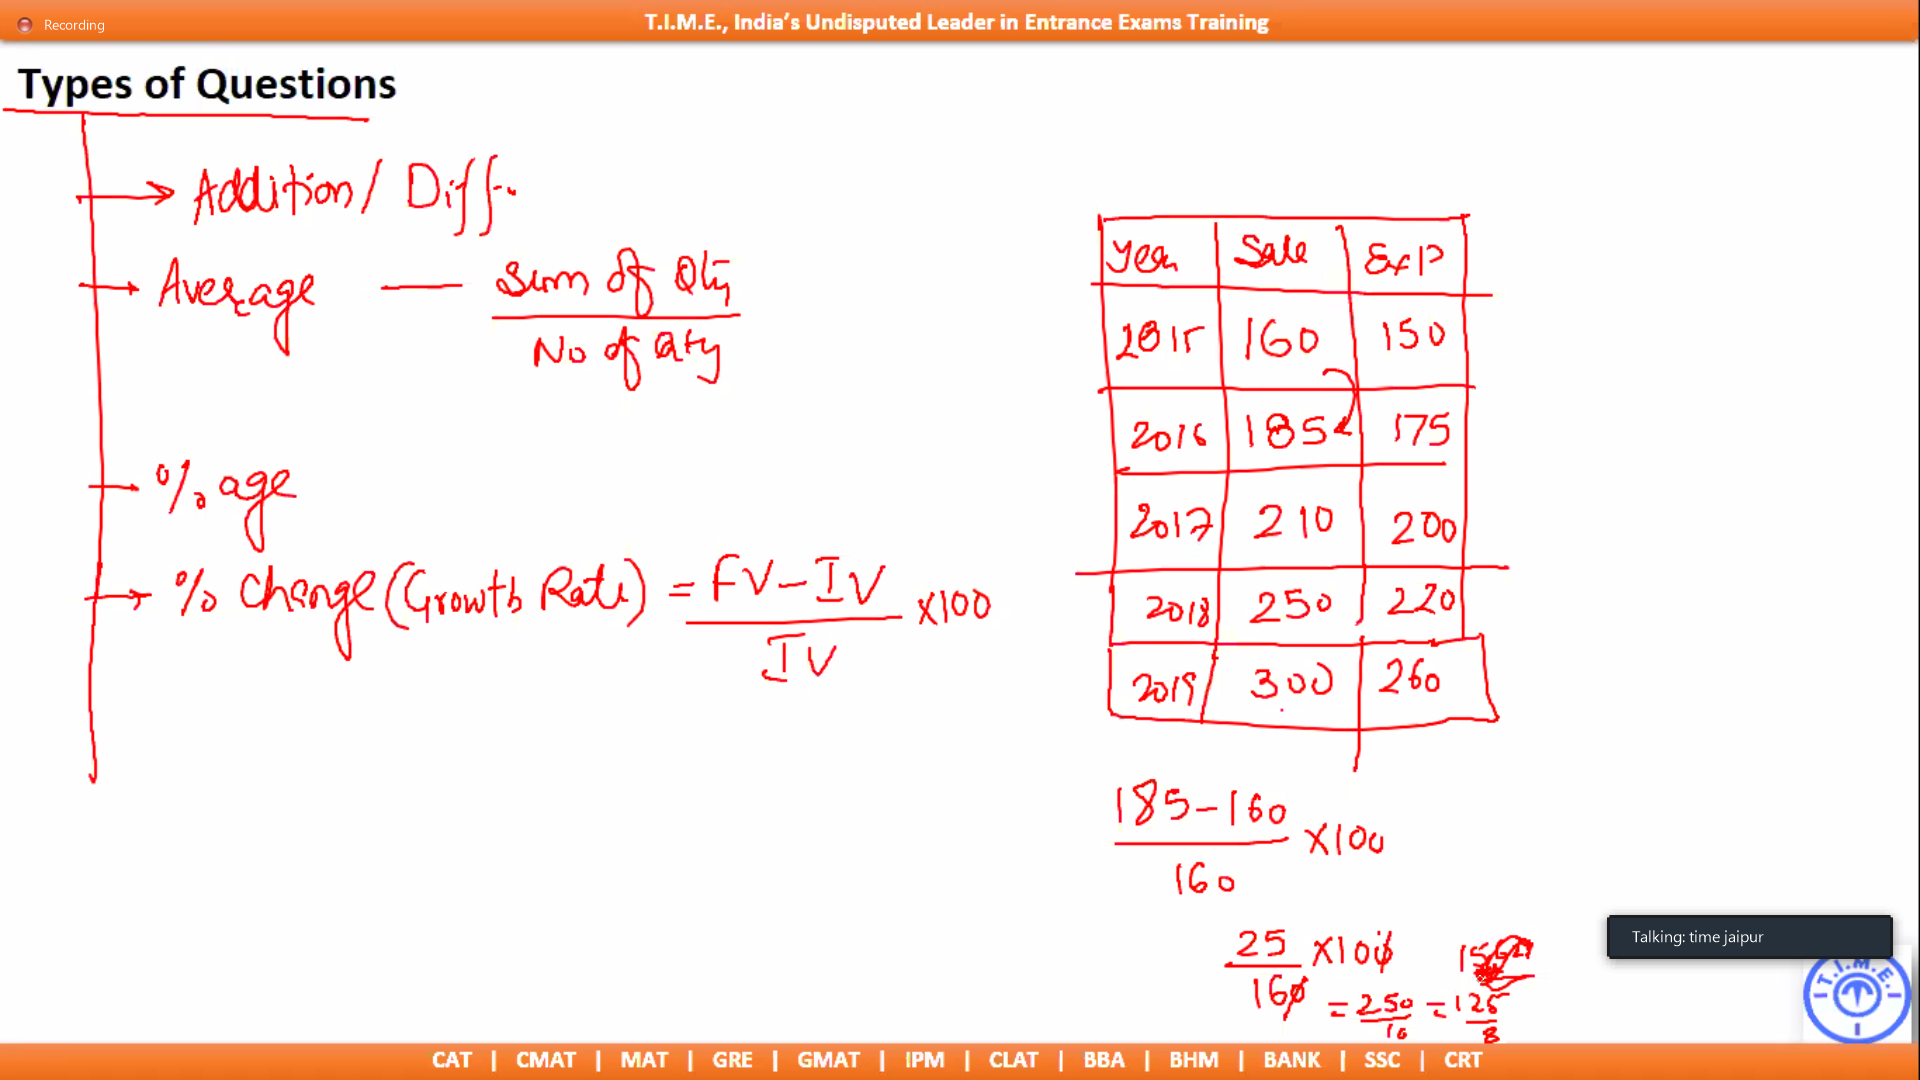 Recording
T.I.M.E., India's Undisputed Leader in Entrance Exams Training
Types of Questions
→ Addition / Diff.
→ Average — Sum of Qty
No of Qty
→ % age
→ % Change (Growth Rate) = FV - IV
IV
×100
Year Sale Exp
2015 160 150
2016 185 175
2017 210 200
2018 250 220
2019 300 260
185-160
160
×100
25
160
×100
= 250
16
= 125
8
Talking: time jaipur
T.I.M.E.
CAT | CMAT | MAT | GRE | GMAT | IPM | CLAT | BBA | BHM | BANK | SSC | CRT